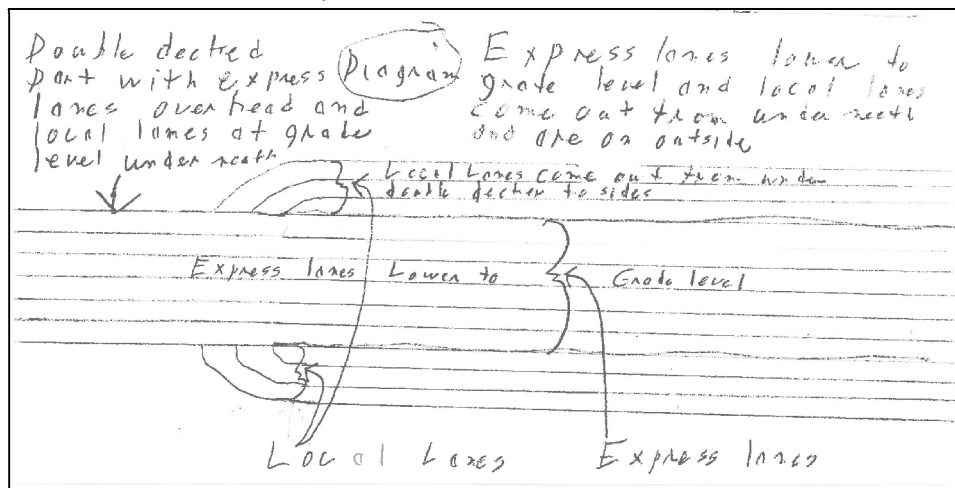 Double decked
part with express
lanes overhead and
local lanes at grade
level under neath
Diagram
Express lanes lower to
grade level and local lanes
come out from under neath
and are on outside
Local Lanes come out from under
double decker to sides
Express lanes Lower to Grade level
Local Lanes
Express lanes